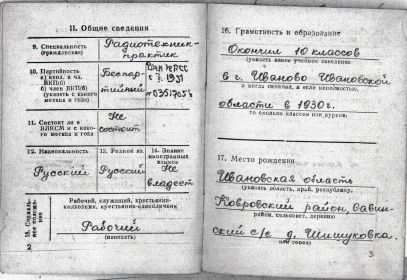 II. Общие сведения
9. Специальность
(гражданская)
Радиотехник-
практик
10. Партийность
а) канд. в чл.
ВКП(б)
б) член ВКП(б)
(указать с какого
месяца и года)
Беспар-
тийный
член КПСС
с 1951
11. Состоит ли в
ВЛКСМ и с како-
го месяца и года
Не
состоит
12. Национальность
Русский
13. Родной яз.
Русский
14. Знание
иностранных
языков
Не
владеет
15. Социаль-
ное положе-
ние
Рабочий, служащий, крестьянин-
колхозник, крестьянин-единоличник
Рабочий
(написать)
2
16. Грамотность и образование
Окончил 10 классов
(указать какое учебное заведение
в г. Иваново Ивановской
и когда окончил, а если неполностью,
области в 1930г.
то сколько классов или курсов)
17. Место рождения
Ивановская область
(указать область, край, республику,
Ковровский район, Савин-
район, сельсовет, деревню
ский с/с д. Шишуковка.
или город)
3